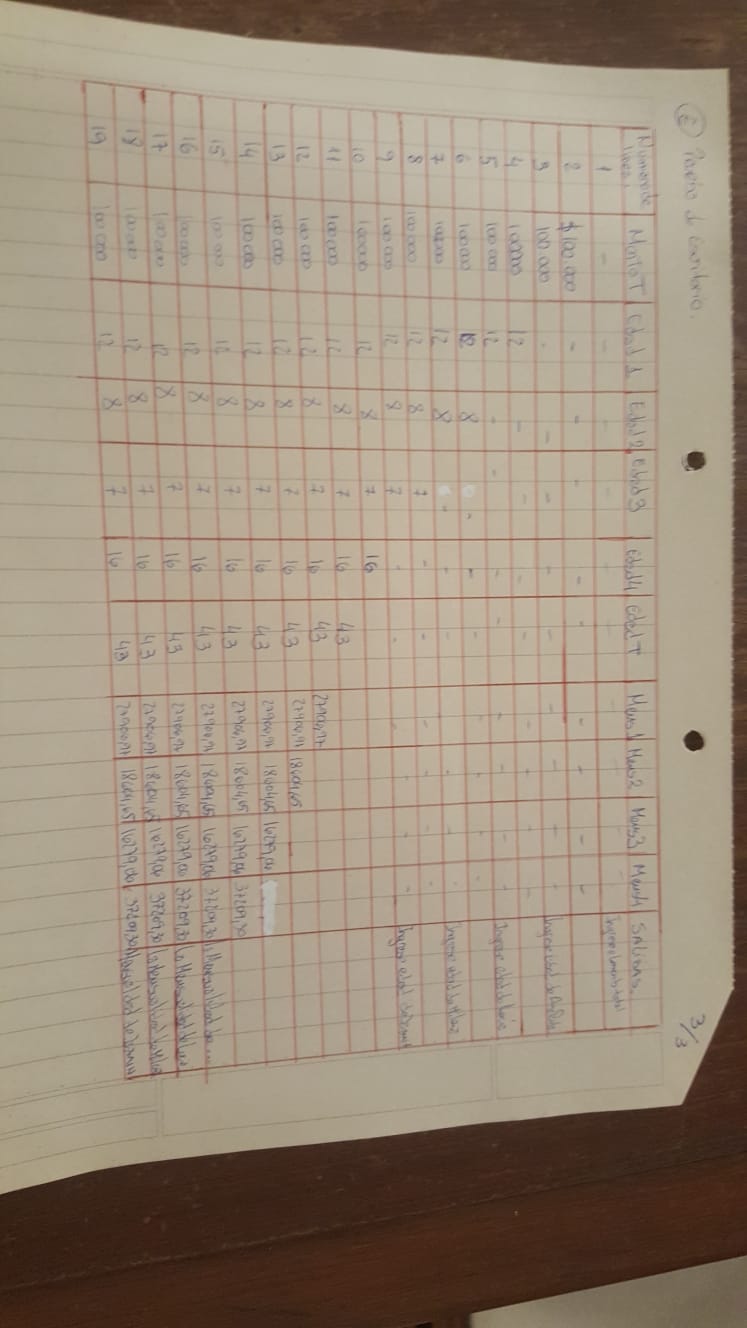 3/3
② Prueba de Escritorio.
Numero de linea. MontoT Edad 1 Edad 2 Edad 3 Edad 4 EdadT Mens1 Mens2 Mens3 Mens4 Salidas.
1 - - -
2 $100.000 - - - - - - - -
3 100.000 - - - - - - - - Ingrese edad de
4 100000 12 - - - - - - - -
5 100.000 12 - - - - - - - Ingrese edad de
6 100000 12 8 - - - - - -
7 100000 12 8 - - - - - - Ingrese edad de
8 100.000 12 8 7 - - - - - -
9 100.000 12 8 7 - - - - - - Ingrese edad
10 100000 12 8 7 16
11 100000 12 8 7 16 43
12 100.000 12 8 7 16 43 27906,97
13 100.000 12 8 7 16 43 27906,97 18604,65
14 100.000 12 8 7 16 43 27906,97 18604,65 16279,06
15 100.000 12 8 7 16 43 27906,97 18604,65 16279,06 37209,30
16 100000 12 8 7 16 43 27906,97 18604,65 16279,06 37209,30 La Mensualidad de ....
17 100.000 12 8 7 16 43 27906,97 18604,65 16279,06 37209,30 La Mensualidad de
18 100000 12 8 7 16 43 27906,97 18604,65 16279,06 37209,30 La Mensualidad de
19 100000 12 8 7 16 43 27906,97 18604,65 16279,06 37209,30 La Mensualidad de